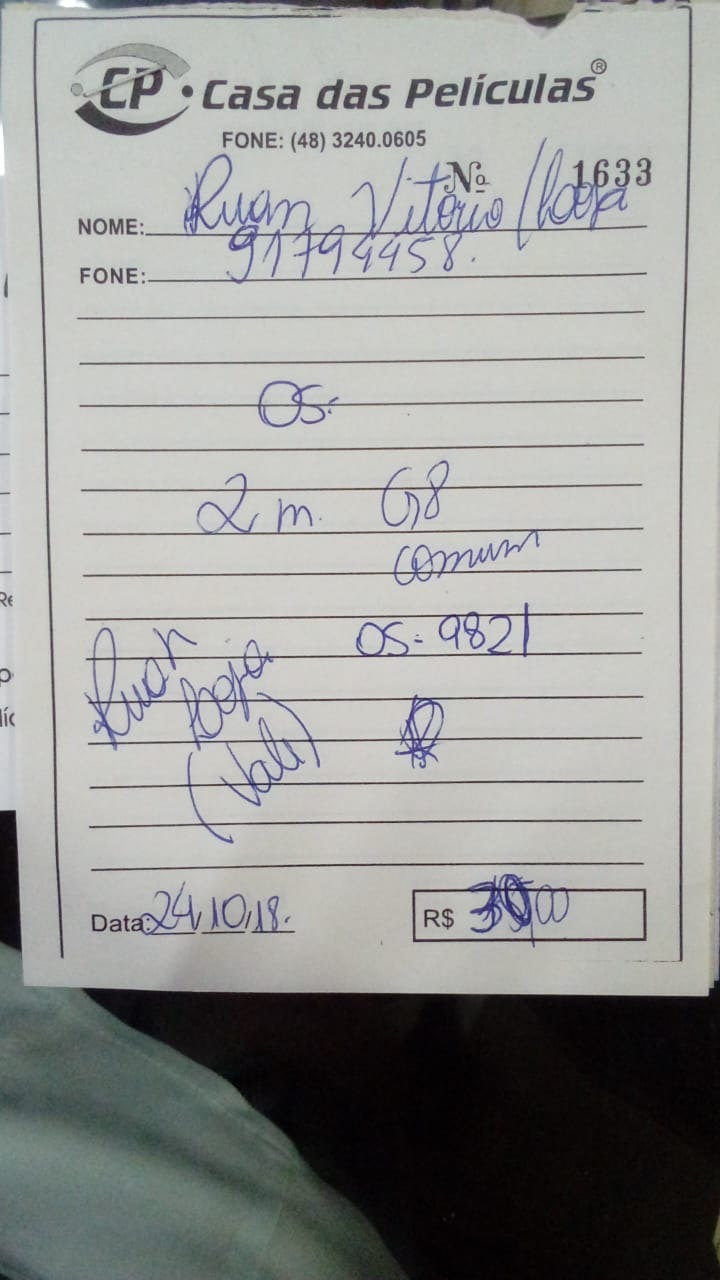 CP • Casa das Películas®
FONE: (48) 3240.0605
Nº 1633
NOME: Ruan Vitório /
FONE: 91794458.
OS:
2 m. G8
comum
OS: 9821
Ruan
(Vale)
Data: 24/10/18.
R$ ,00